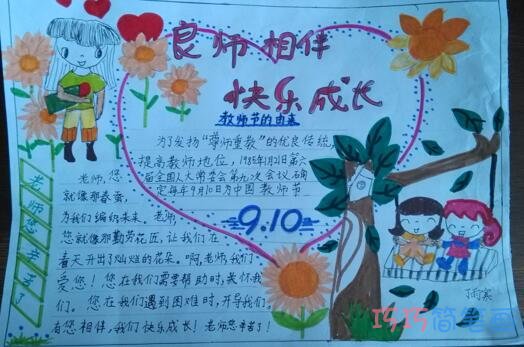 良师相伴
快乐成长
教师节的由来
为了发扬“尊师重教”的优良传统,
提高教师地位,1985年1月21日第六
届全国人大常委会第九次会议确
定每年9月10日为中国教师节
9.10
老师您辛苦了
老师,您
就像那春蚕,
为我们编织未来。老师,
您就像那勤劳花匠,让我们在
春天开出了灿烂的花朵。啊,老师我们
爱您!您在我们需要帮助时,关怀我
们。您在我们遇到困难时,开导我们。
有您相伴,我们快乐成长!老师您辛苦了!
巧巧简笔画